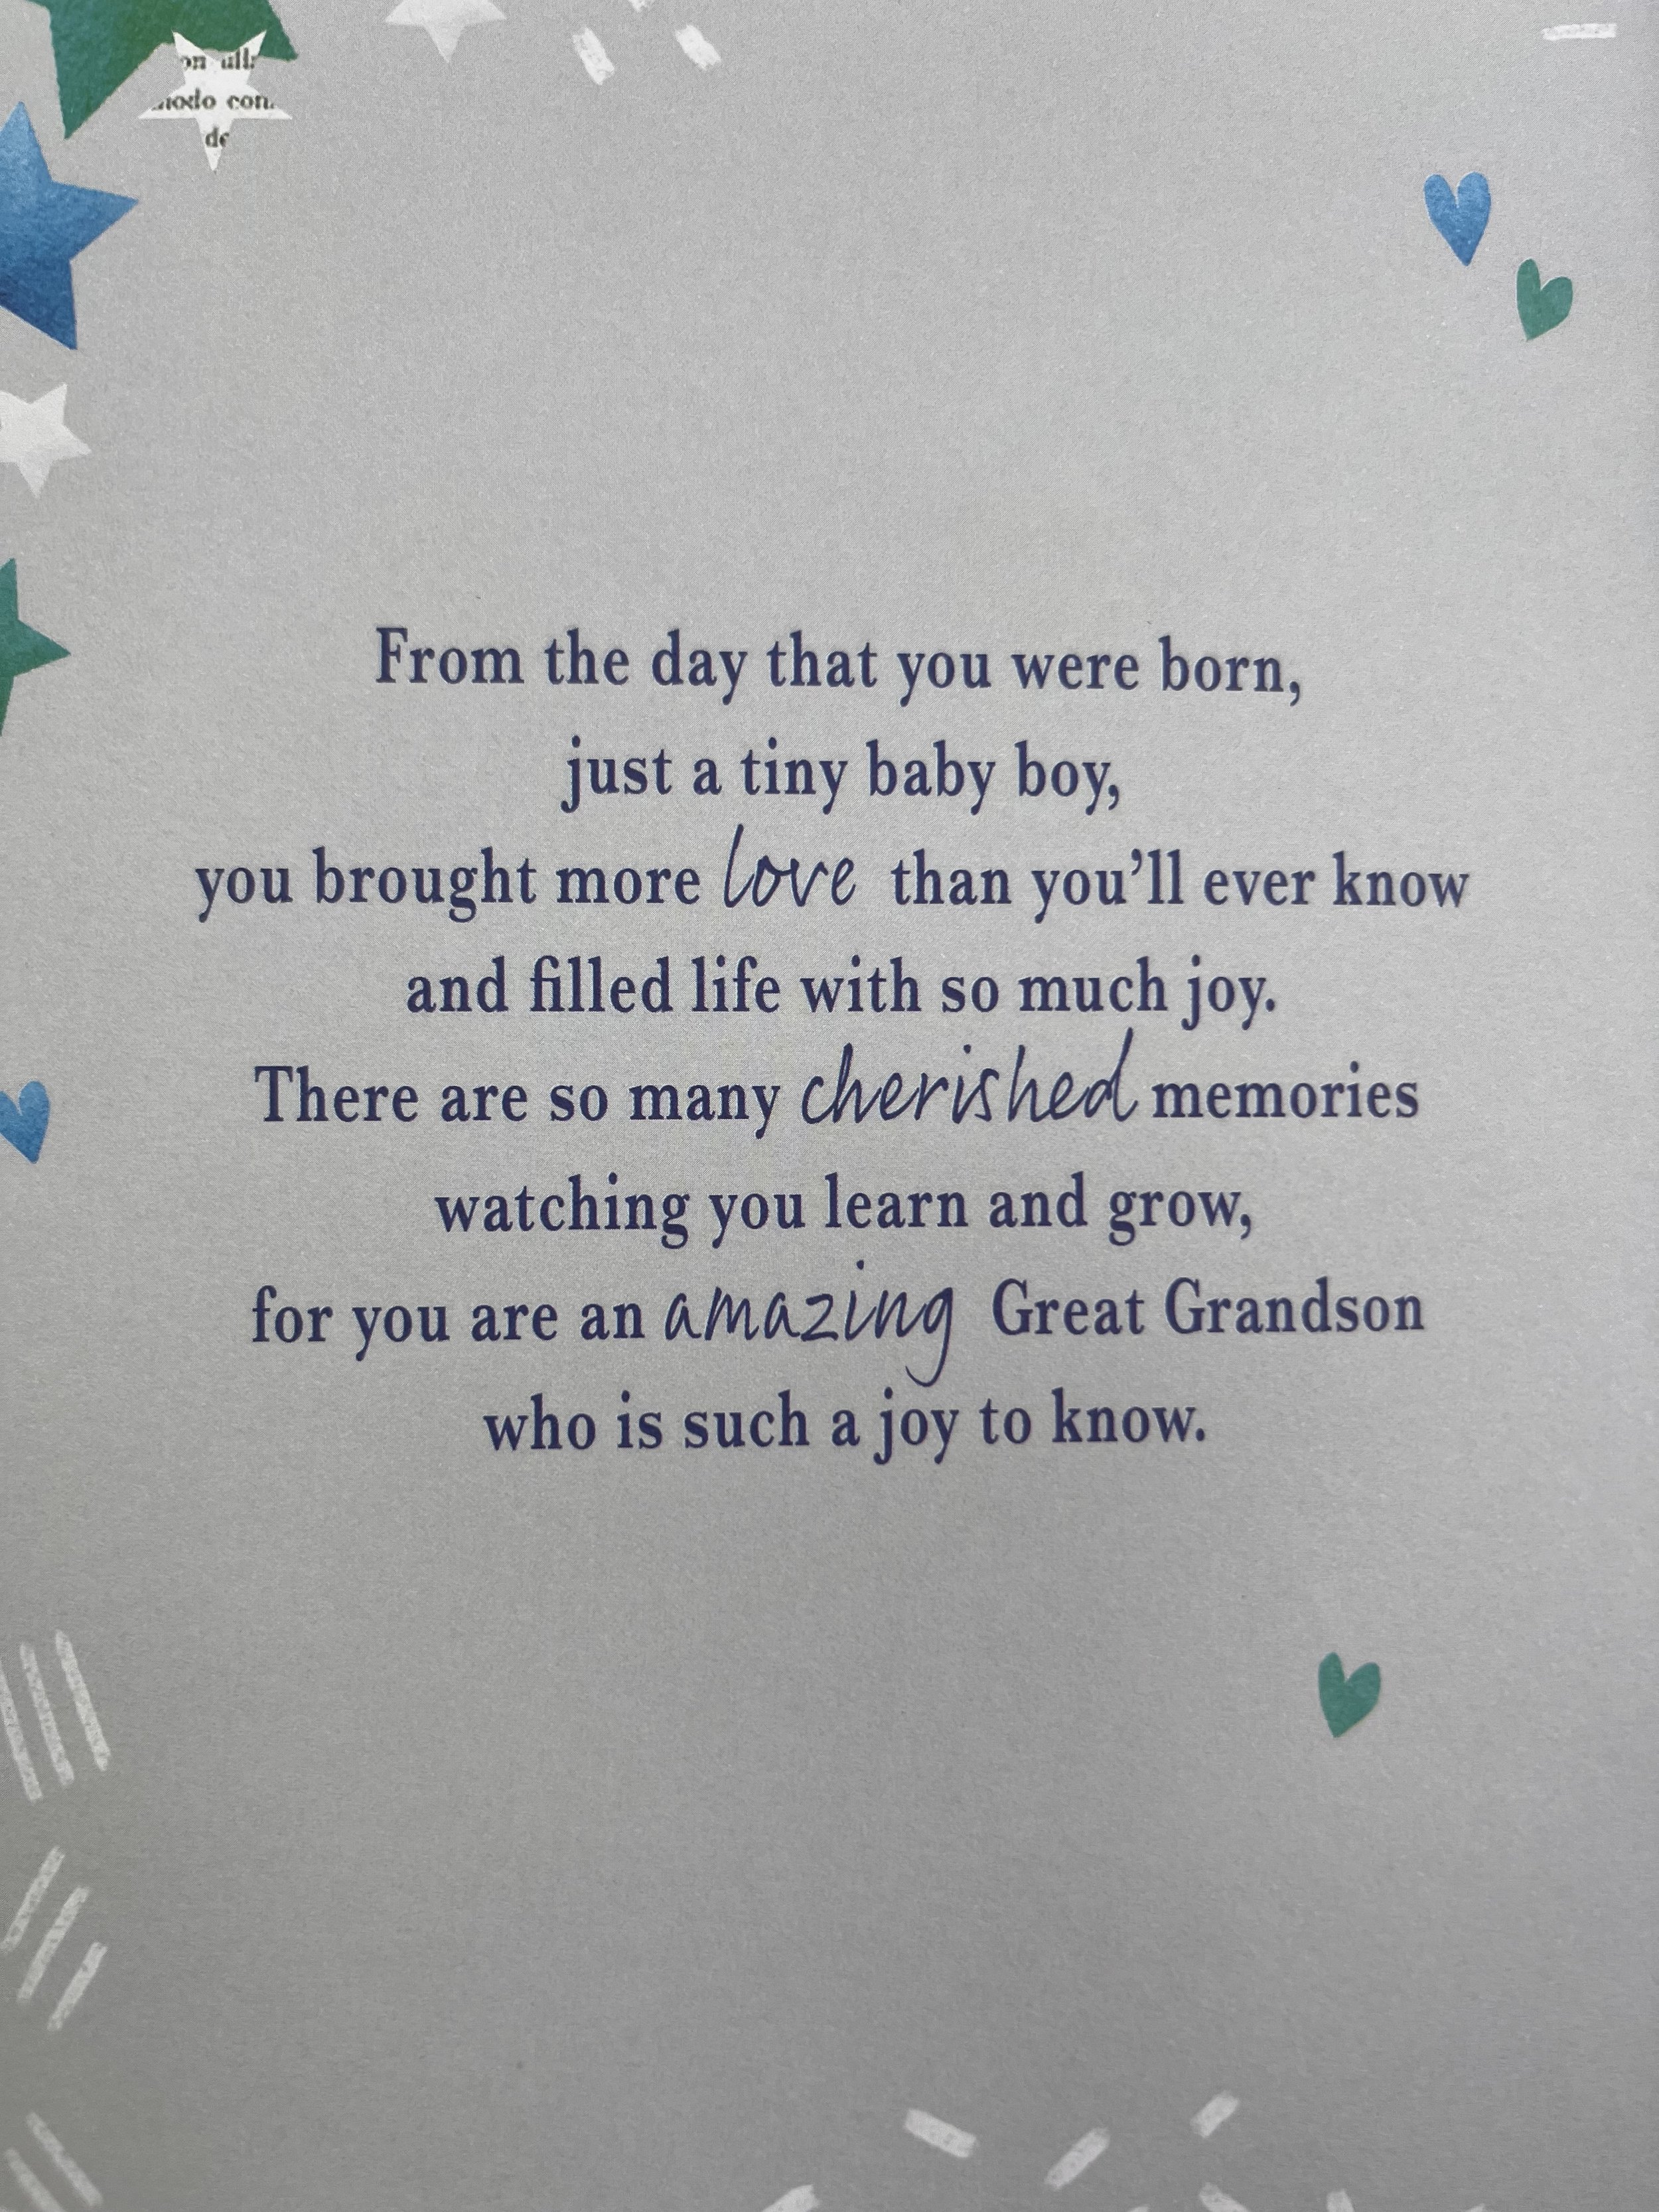 on ull
modo con
de
From the day that you were born,
just a tiny baby boy,
you brought more love than you’ll ever know
and filled life with so much joy.
There are so many cherished memories
watching you learn and grow,
for you are an amazing Great Grandson
who is such a joy to know.